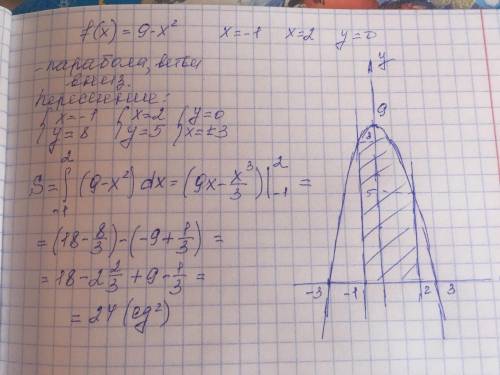 f(x) = 9-x² x=-1 x=2 y=0
-парабола, ветви
вниз.
Пересечение:
{x=-1 {x=2 {y=0
{y=8 {y=5 {x=±3
S=∫₋₁² (9-x²) dx = (9x-x³/3)|₋₁² =
= (18-8/3)-(-9+1/3) =
= 18-2 2/3 +9-1/3 =
= 24 (ед²)
y
9
-3 -1 2 3